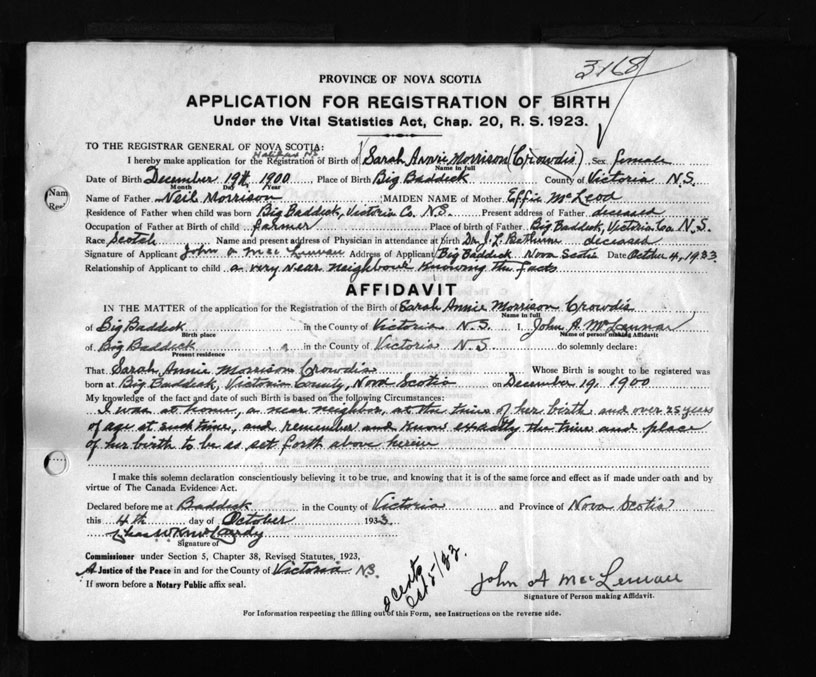 3168
PROVINCE OF NOVA SCOTIA
APPLICATION FOR REGISTRATION OF BIRTH
Under the Vital Statistics Act, Chap. 20, R. S. 1923.
TO THE REGISTRAR GENERAL OF NOVA SCOTIA:
I hereby make application for the Registration of Birth of Sarah Annie Morrison (Crowdis) Sex female
Name in full
Date of Birth December 19th 1900 Place of Birth Big Baddeck County of Victoria N.S.
Month Day Year
Name of Father Neil Morrison MAIDEN NAME of Mother Effie McLeod
Residence of Father when child was born Big Baddeck, Victoria Co. N.S. Present address of Father deceased
Occupation of Father at Birth of child farmer Place of birth of Father Big Baddeck, Victoria Co. N.S.
Race Scotch Name and present address of Physician in attendance at birth Dr. J. L. Bethune deceased
Signature of Applicant John A MacLennan Address of Applicant Big Baddeck Nova Scotia Date October 4, 1933
Relationship of Applicant to child a very near neighbour knowing the facts
Nam
Re
AFFIDAVIT
IN THE MATTER of the application for the Registration of the Birth of Sarah Annie Morrison Crowdis
Name in full
of Big Baddeck in the County of Victoria N.S. I, John A. McLennan
Birth place Name of person making Affidavit
of Big Baddeck in the County of Victoria N.S. do solemnly declare:
Present residence
That Sarah Annie Morrison Crowdis Whose Birth is sought to be registered was
born at Big Baddeck, Victoria County, Nova Scotia on December 19, 1900
My knowledge of the fact and date of such Birth is based on the following Circumstances:
I was at home, a near neighbor, at the time of her birth and over 25 years
of age at such time, and remember and know exactly the time and place
of her birth to be as set forth above herein
I make this solemn declaration conscientiously believing it to be true, and knowing that it is of the same force and effect as if made under oath and by
virtue of The Canada Evidence Act.
Declared before me at Baddeck in the County of Victoria and Province of Nova Scotia
this 4th day of October 1933
Signature of
Commissioner under Section 5, Chapter 38, Revised Statutes, 1923,
A Justice of the Peace in and for the County of Victoria N.S.
If sworn before a Notary Public affix seal.
Oct 5/33
John A MacLennan
Signature of Person making Affidavit.
For Information respecting the filling out of this Form, see Instructions on the reverse side.